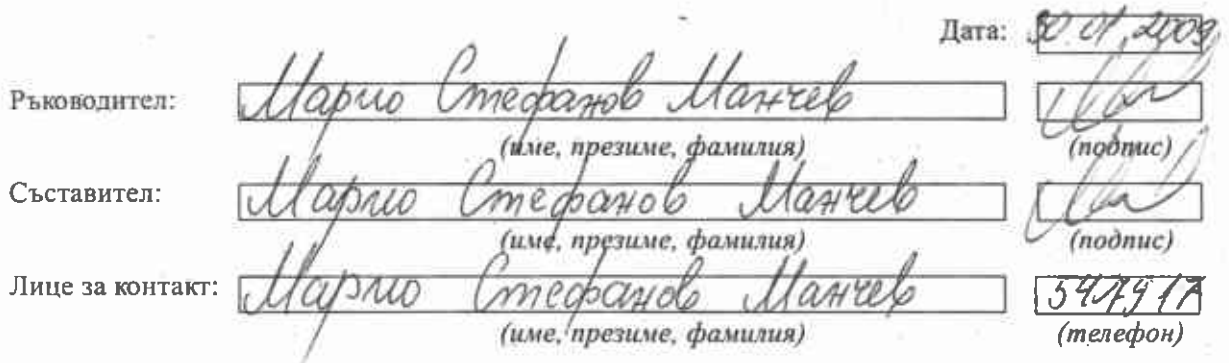 Дата: 30.01.2009
Ръководител: Марио Стефанов Манчев
(име, презиме, фамилия) (подпис)
Съставител: Марио Стефанов Манчев
(име, презиме, фамилия) (подпис)
Лице за контакт: Марио Стефанов Манчев
(име, презиме, фамилия) (телефон)